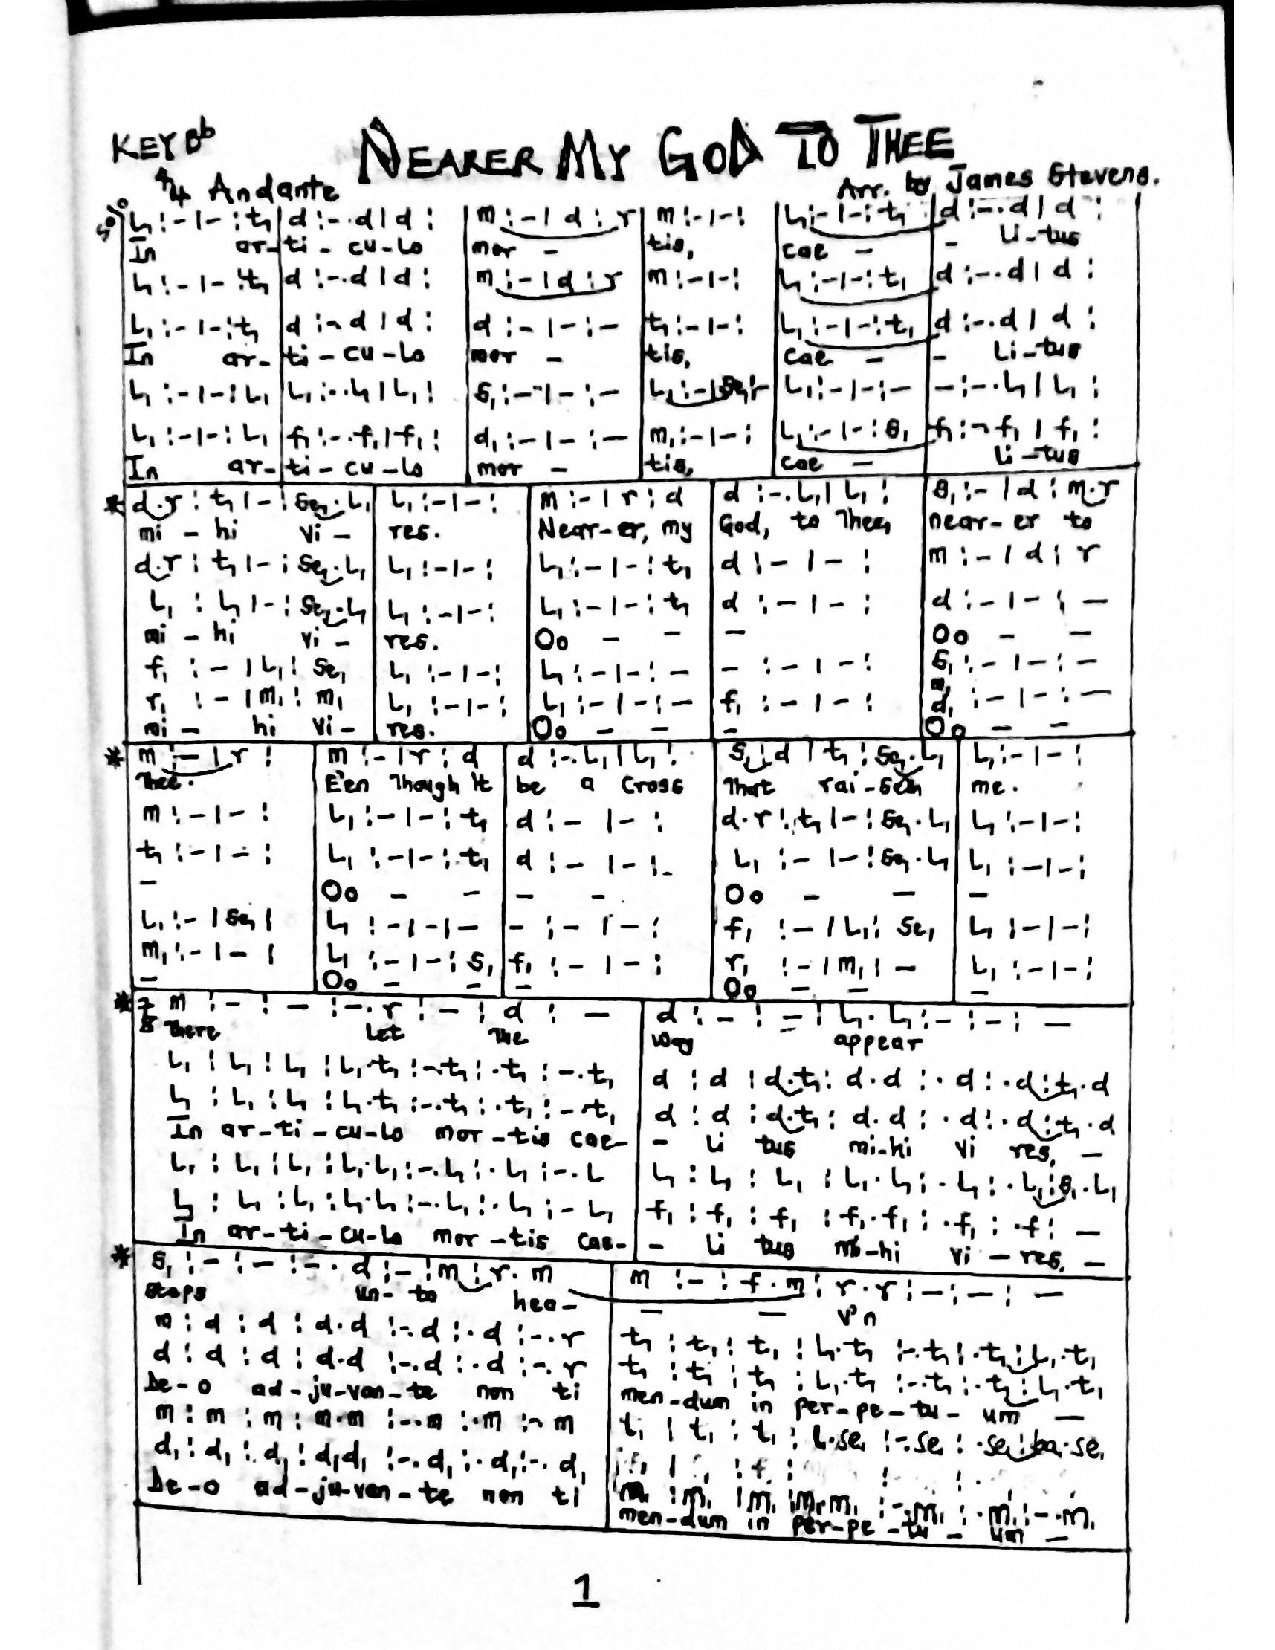 KEY Bb
NEARER MY GOD TO THEE
4/4 Andante
Arr. by James Stevens.
L₁ :- |- : t₁ | d :-.d | d : | m :- | d : r | m :- |- : | L₁ :- |- : t₁ | d :-.d | d :
In ar-ti-cu-lo mor - tis, cae - - li-tus
L₁ :- |- : t₁ | d :-.d | d : | m :- | d : r | m :- |- : | L₁ :- |- : t₁ | d :-.d | d :
L₁ :- |- : t₁ | d :-.d | d : | d :- |- :- | t₁ :- |- : | L₁ :- |- : t₁ | d :-.d | d :
In ar-ti-cu-lo mor - tis, cae - - Li-tus
L₁ :- |- : L₁ | L₁ :-.L₁ | L₁ : | s₁ :- |- :- | L₁ :- | se₁ : | L₁ :- |- :- | - :-.L₁ | L₁ :
L₁ :- |- : L₁ | f₁ :-.f₁ | f₁ : | d₁ :- |- :- | m₁ :- |- : | L₁ :- |- : s₁ | f₁ :- f₁ | f₁ :
In ar-ti-cu-lo mor - tis, cae - Li-tus
d.r : t₁ |- : se₁.L₁ | L₁ :- |- : | m :- | r : d | d :-.L₁ | L₁ : | s₁ :- | d : m.r
mi - hi vi - res. Near-er, my God, to Thee, near-er to
d.r : t₁ |- : se₁.L₁ | L₁ :- |- : | L₁ :- |- : t₁ | d :- |- : | m :- | d : r
L₁ : L₁ |- : se₁.L₁ | L₁ :- |- : | L₁ :- |- : t₁ | d :- |- : | d :- |- : -
mi - hi vi - res. Oo - - - Oo - -
f₁ :- | L₁ : se₁ | L₁ :- |- : | L₁ :- |- :- | - :- |- : | s₁ :- |- :-
r₁ :- | m₁ : m₁ | L₁ :- |- : | L₁ :- |- :- | f₁ :- |- : | d₁ :- |- :-
mi - hi vi - res. Oo - - - Oo - -
m :- | r : | m :- | r : d | d :-.L₁ | L₁ : | s₁ : d | t₁ : se₁.L₁ | L₁ :- |- :
Thee. E'en though it be a cross That rai-seth me.
m :- |- : | L₁ :- |- : t₁ | d :- |- : | d.r : t₁ |- : se₁.L₁ | L₁ :- |- :
t₁ :- |- : | L₁ :- |- : t₁ | d :- |- : | L₁ :- |- : se₁.L₁ | L₁ :- |- :
- Oo - - - - Oo - - -
L₁ :- | se₁ | L₁ :- |- |- | - :- |- : | f₁ :- | L₁ : se₁ | L₁ :- |- :
m₁ :- |- : | L₁ :- |- : s₁ | f₁ :- |- : | r₁ :- | m₁ : - | L₁ :- |- :
- Oo - - - Oo - - -
7/8 m :- : - :-.r :- : d : - | d :- :- | L₁.L₁ :- :- : -
There Let the way appear
L₁ : L₁ : L₁ : L₁.t₁ :-.t₁ : .t₁ :-.t₁ | d : d : d.t₁ : d.d : .d : .d : t₁.d
L₁ : L₁ : L₁ : L₁.t₁ :-.t₁ : .t₁ :-.t₁ | d : d : d.t₁ : d.d : .d : .d : t₁.d
In ar-ti-cu-lo mor-tis cae- - Li tus mi-hi vi res, -
L₁ : L₁ : L₁ : L₁.L₁ :-.L₁ : .L₁ :-.L | L₁ : L₁ : L₁ : L₁.L₁ : .L₁ : .L₁ : s₁.L₁
L₁ : L₁ : L₁ : L₁.L₁ :-.L₁ : .L₁ :- L₁ | f₁ : f₁ : f₁ : f₁.f₁ : .f₁ : .f : -
In ar-ti-cu-lo mor-tis cae- - Li tus mi-hi vi-res, -
s₁ :- :- :-.d :- : m : r.m | m :- : f.m : r.r :- :- : -
steps un-to hea- - - v'n
m : d : d : d.d :-.d : .d :-.r | t₁ : t₁ : t₁ : L₁.t₁ :-.t₁ : .t₁ : L₁.t₁
d : d : d : d.d :-.d : .d :-.r | t₁ : t₁ : t₁ : L₁.t₁ :-.t₁ : .t₁ : L₁.t₁
De-o ad-ju-van-te non ti men-dum in per-pe-tu-um -
m : m : m : m.m :-.m : .m :- m | t₁ : t₁ : t₁ : L.se₁ :-.se₁ : .se₁ : ba.se₁
d₁ : d₁ : d₁ : d₁d₁ :-.d₁ : .d₁ :-.d₁ | m₁ : m₁ | m₁ | m₁.m₁ :-.m₁ : .m₁ :-.m₁
De-o ad-ju-van-te non ti men-dum in per-pe-tu-um -
1